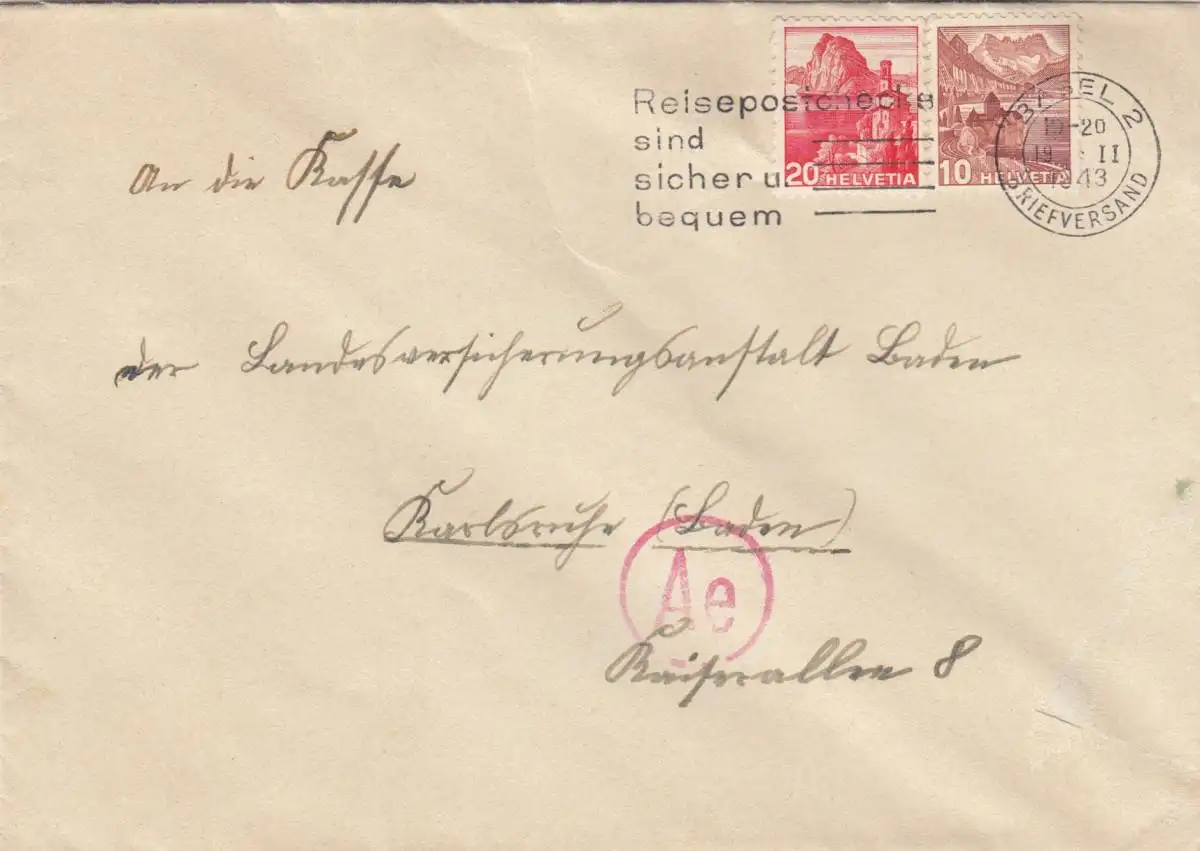 Reisepostchecks
sind
sicher u.
bequem
20 HELVETIA
10 HELVETIA
BASEL 2
-20
19. II
1943
BRIEFVERSAND
An die Kasse
der Landesversicherungsanstalt Baden
Karlsruhe (Baden)
Ae
Kaiserallee 8